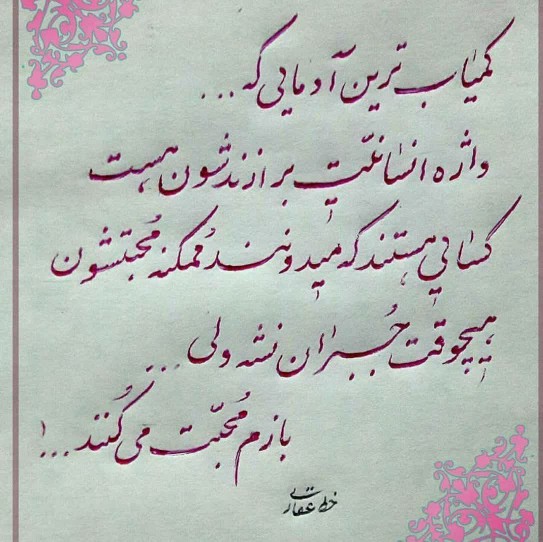 کمیاب ترین آدمایی که...
واژه انسانیّت برازندشون هست
کسایی هستند که میدونند مُمکنه مُحبتشون
هیچوقت جُبران نشه ولی...
بازم مُحبّت می کُنند...!